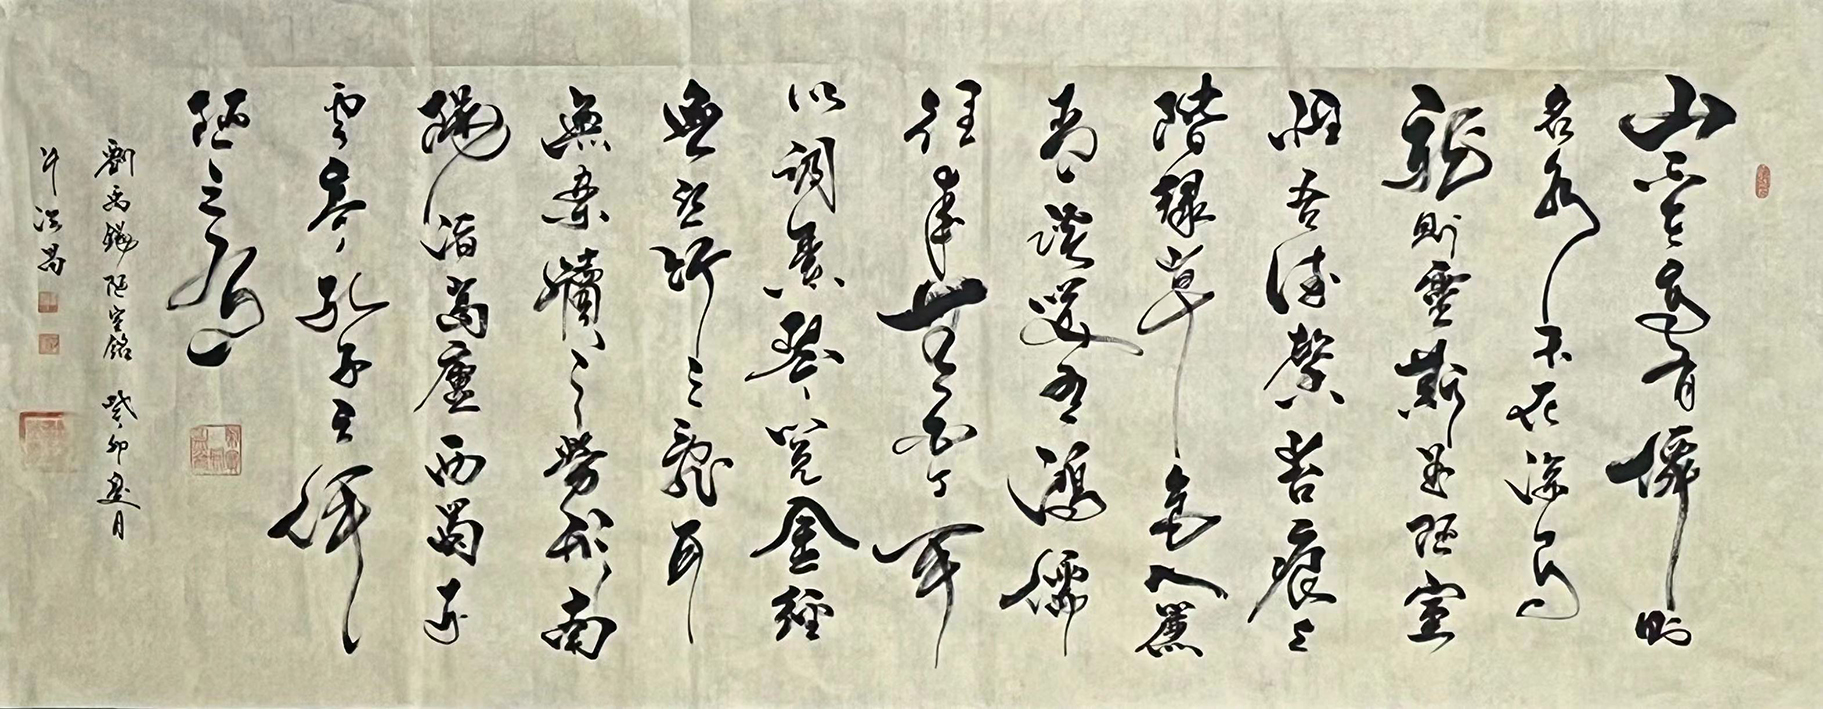 山不在高有僊則
名水不在深有
龍則靈斯是陋室
惟吾德馨苔痕上
階綠草色入簾
青談笑有鴻儒
往來無白丁可
以調素琴閱金經
無絲竹之亂耳
無案牘之勞形南
陽諸葛廬西蜀子
雲亭孔子云何
陋之有
劉禹錫陋室銘 癸卯夏月